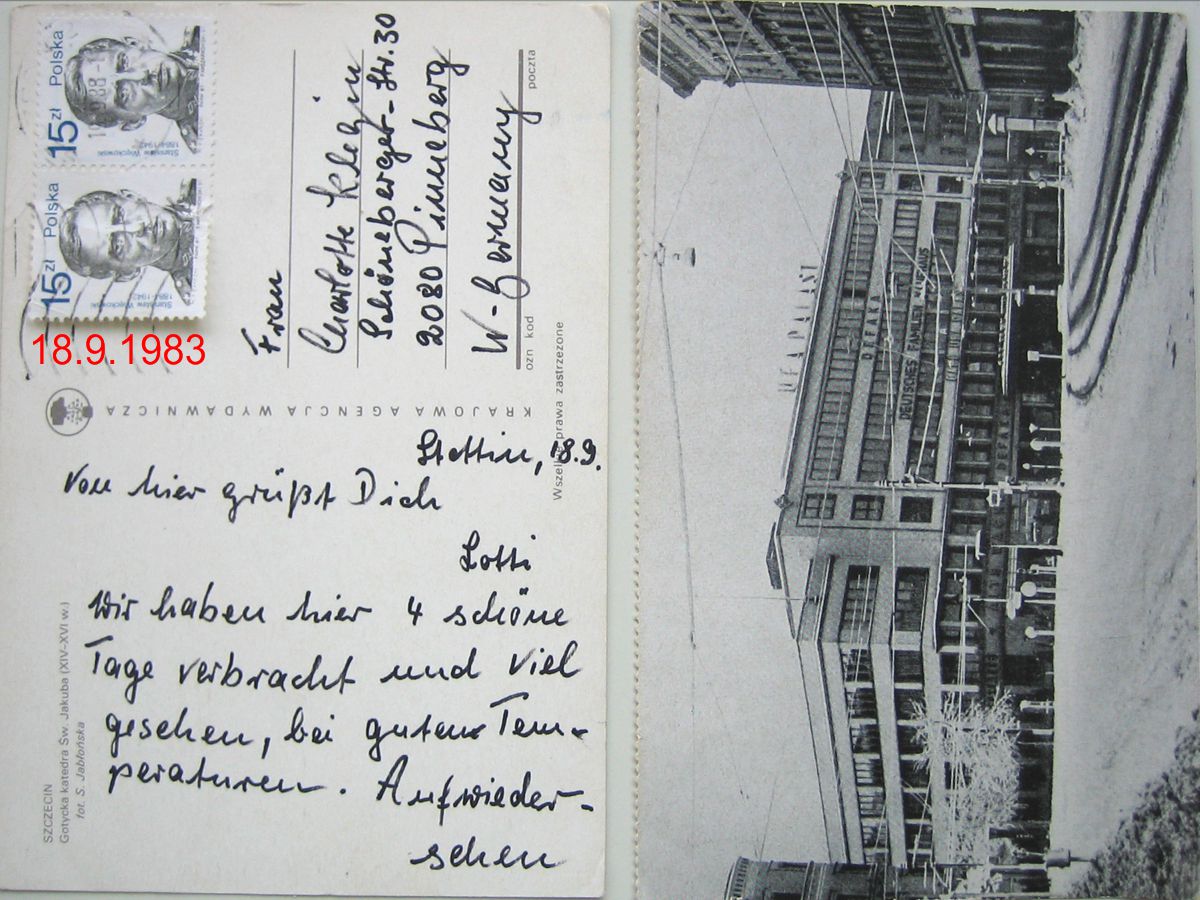 15 zł Polska
Stanisław Więckowski
1884-1942
15 zł Polska
Stanisław Więckowski
1884-1942
18.9.1983
Frau
Charlotte Klein
Schöneberger-Str. 30
2080 Pinneberg
W-Germany
ozn kod
poczta
KRAJOWA AGENCJA WYDAWNICZA
Wszelkie prawa zastrzeżone
Stettin, 18.9.
Von hier grüßt Dich
Lotti
Wir haben hier 4 schöne
Tage verbracht und viel
gesehen, bei guten Tem-
peraturen. Aufwieder-
sehen
SZCZECIN
Gotycka katedra Św. Jakuba (XIV-XVI w.)
fot. S. Jabłońska
UFA PALAST
DEFAKA
DEUTSCHES FAMILIEN KAUFHAUS
DEFAKA